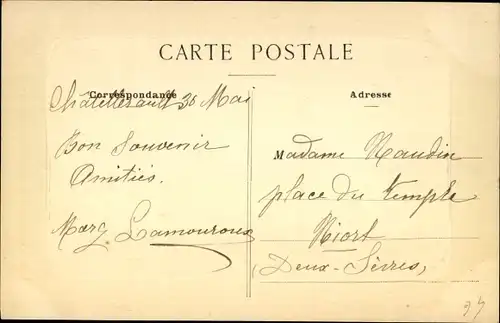 CARTE POSTALE
Correspondance
Adresse
Châtellerault 30 Mai
Bon Souvenir
Amitiés.
Marg. Lamouroux
Madame Naudin
place du temple
Niort
(Deux-Sèvres)